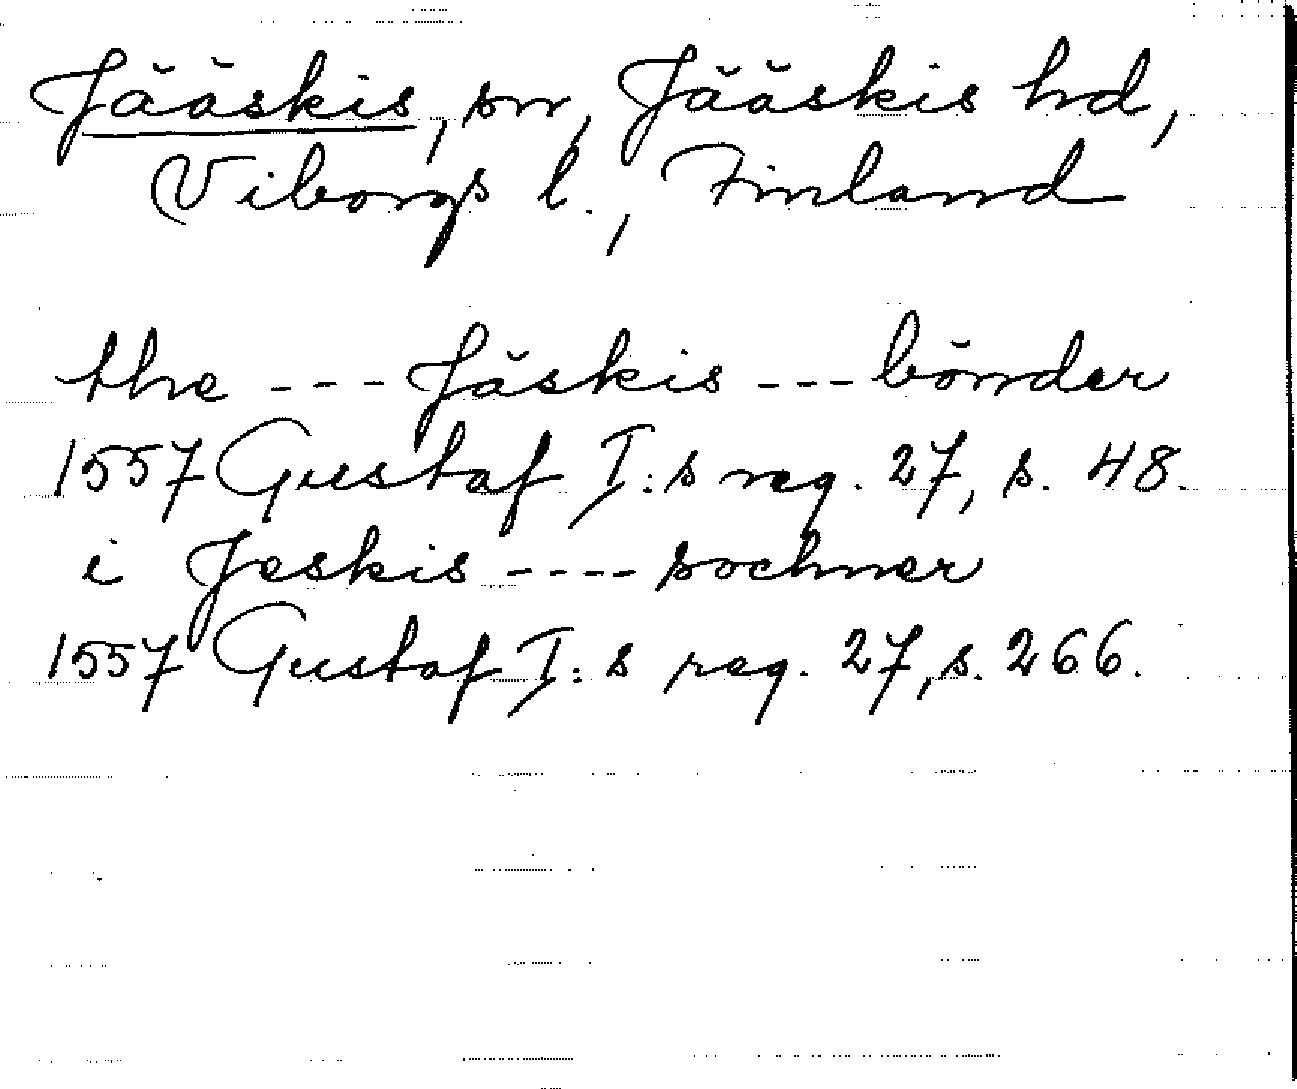 Jääskis, sn, Jääskis hd,
Viborgs l., Finland
the --- Jäskis --- bönder
1557 Gustaf I:s reg. 27, s. 48.
i Jeskis ---- sochner
1557 Gustaf I:s reg. 27, s. 266.